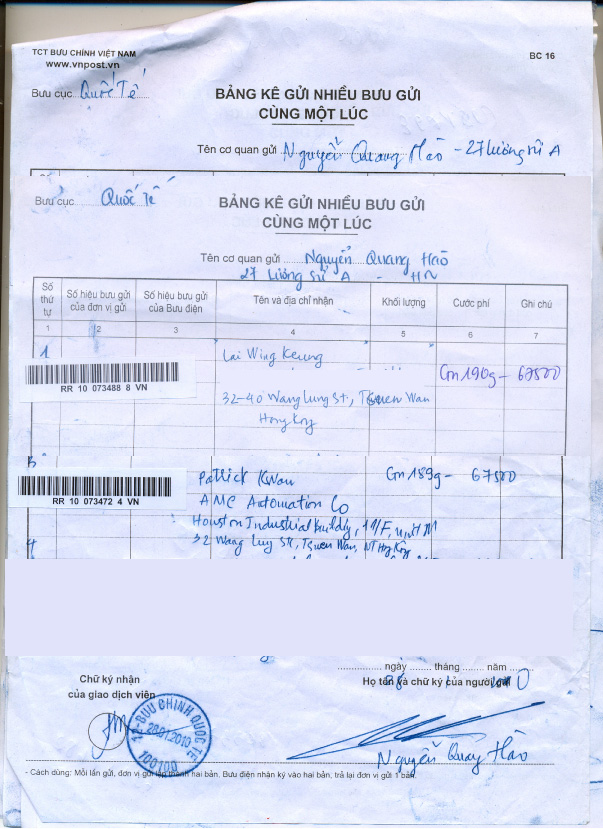 TCT BƯU CHÍNH VIỆT NAM
www.vnpost.vn
BC 16
Bưu cục Quốc Tế
BẢNG KÊ GỬI NHIỀU BƯU GỬI
CÙNG MỘT LÚC
Tên cơ quan gửi Nguyễn Quang Hào - 27 Lương Sử A
Bưu cục Quốc Tế
BẢNG KÊ GỬI NHIỀU BƯU GỬI
CÙNG MỘT LÚC
Tên cơ quan gửi Nguyễn Quang Hào
27 Lương Sử A - HN
Số thứ tự Số hiệu bưu gửi của đơn vị gửi Số hiệu bưu gửi của Bưu điện Tên và địa chỉ nhận Khối lượng Cước phí Ghi chú
1 2 3 4 5 6 7
1 Lai Wing Keung
Gn 190g - 67500
RR 10 073488 8 VN
32-40 Wang Lung St, Tsuen Wan
Hong Kong
Patrick Kwan Gn 189g - 67500
RR 10 073472 4 VN
AMC Automation Co
Houston Industrial Building, 11/F,
32 Wang Lung Str, Tsuen Wan, NT Hong Kong
4
ngày tháng năm
Chữ ký nhận
của giao dịch viên
Họ tên và chữ ký của người gửi
12-BƯU CHÍNH QUỐC TẾ
28.01.2010
100100
Nguyễn Quang Hào
- Cách dùng: Mỗi lần gửi, đơn vị gửi lập thành hai bản. Bưu điện nhận ký vào hai bản, trả lại đơn vị gửi 1 bản.